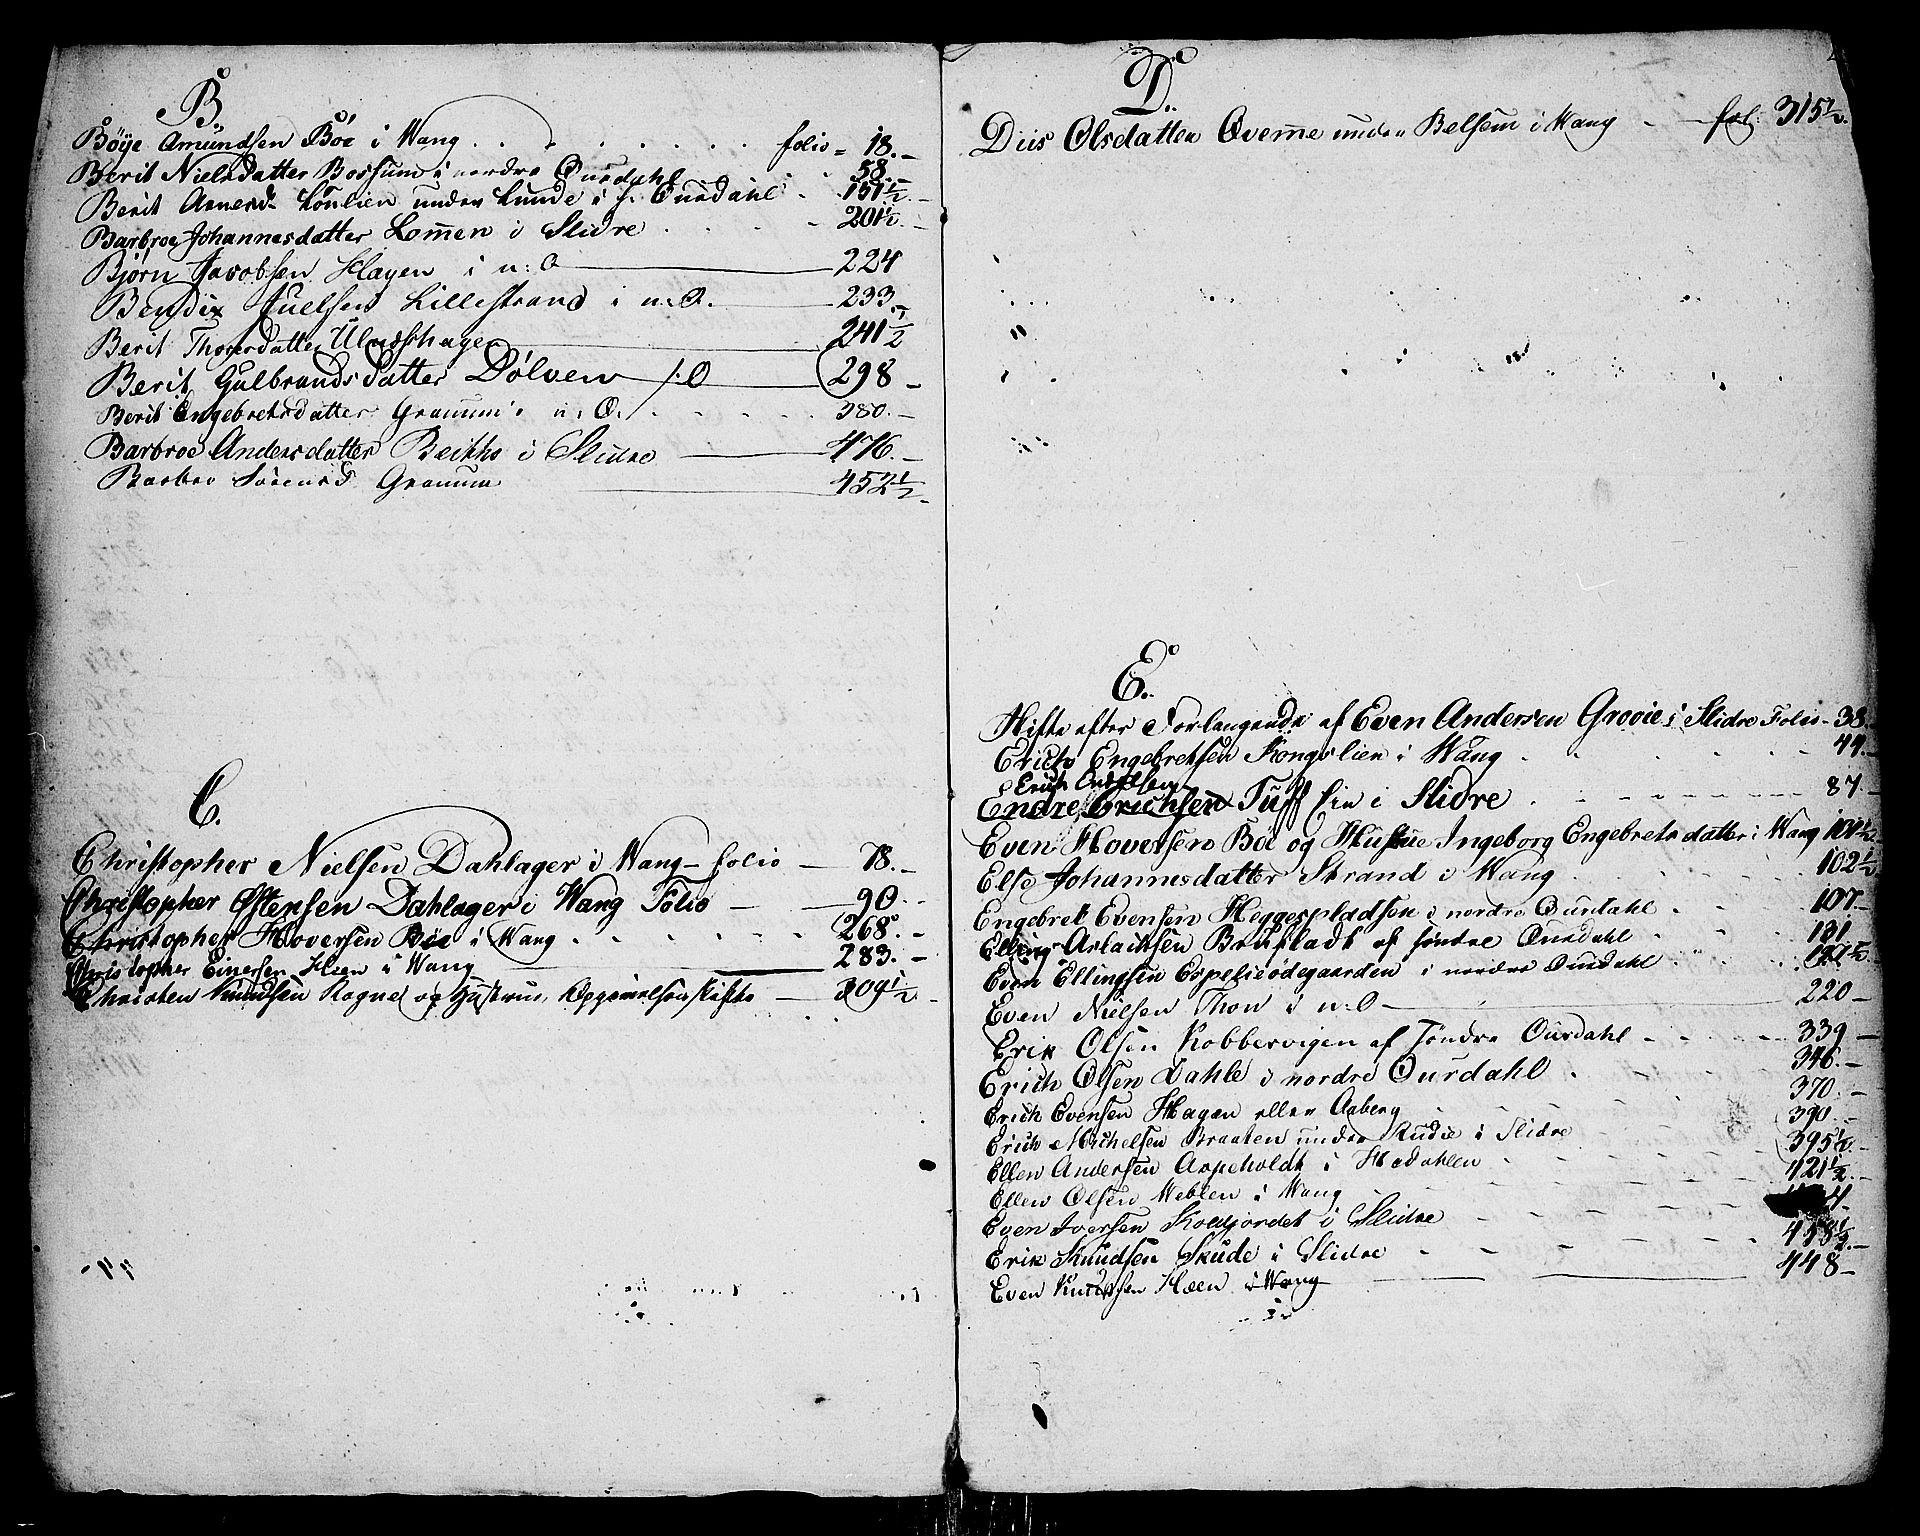 B.
Bøye Amundsen Bøe i Wang . . . . . . . folio = 18.-
Berit Nielsdatter Bossum i nordre Ourdahl 58.-
Berit Arnesd. under Lunde i s. Ourdahl - 151½
Barbroe Johannesdatter Lomen i Slidre . . . . 201½
Bjørn Jacobsen Hagen i n: O 224
Bendix Juelsen Lillestrand i n. O. 233.-
Berit Thorersdatter Ulnesshagen 241½
Berit Gulbrandsdatter Dølven 298 -
Berit Engebretsdatter Granum i n: O. . - - - - 380.-
Barbroe Andersdatter Beitho i Slidre 476.-
Barbro Sørensd Granum 452½-
C.
Christopher Nielsen Dahlager i Wang - folio - 78.-
Christopher Østensen Dahlager i Wang Folio - 90.-
Christopher Hoversen Bøe i Wang . . . . . 268.-
Christopher Einersen Hæn i Wang 283.-
Christen Knudsen Rogne og Hustrue - 309½
D.
Diis Olsdatter Øverne under Belsem i Wang - fol: 315½.
E.
Skifte efter Forlangende af Even Andersen Grovie i Slidre Folio - 38.
Erich Engebretsen Kongslien i Wang . . . . 44.-
Erich Endresen
Endre Erichsen Tuff i Slidre . - - - - - 87.-
Even Hoversen Bøe og Hustrue Ingeborg Engebretsdatter i Wang 101½
Else Johannesdatter Strand i Wang . . . . 102½
Engebret Evensen Heggespladsen i nordre Ourdahl . . . 107.-
Elling Aslachsen af søndre Ourdahl . . . 131
Even Ellingsen Espelieødegaarden i nordre Ourdahl
Even Nielsen Thon i n: O 220 -
Erik Olsen Robbervigen af søndre Ourdahl - - - - 339 -
Erich Olsen Dahle i nordre Ourdahl . 346.-
Erich Evensen Hagen eller Aaberg 370.-
Erich Michelsen Braaten under Rudie i Slidre 390.-
Ellen Andersen i Hedahlen - - - 395½.
Ellen Olsen Weblen i Wang 421½.-
Even Iversen Koldjordet i Slidre 4-
Erik Knudsen Skude i Slidre 458½.-
Even Knudsen Hæen i Wang 448 -